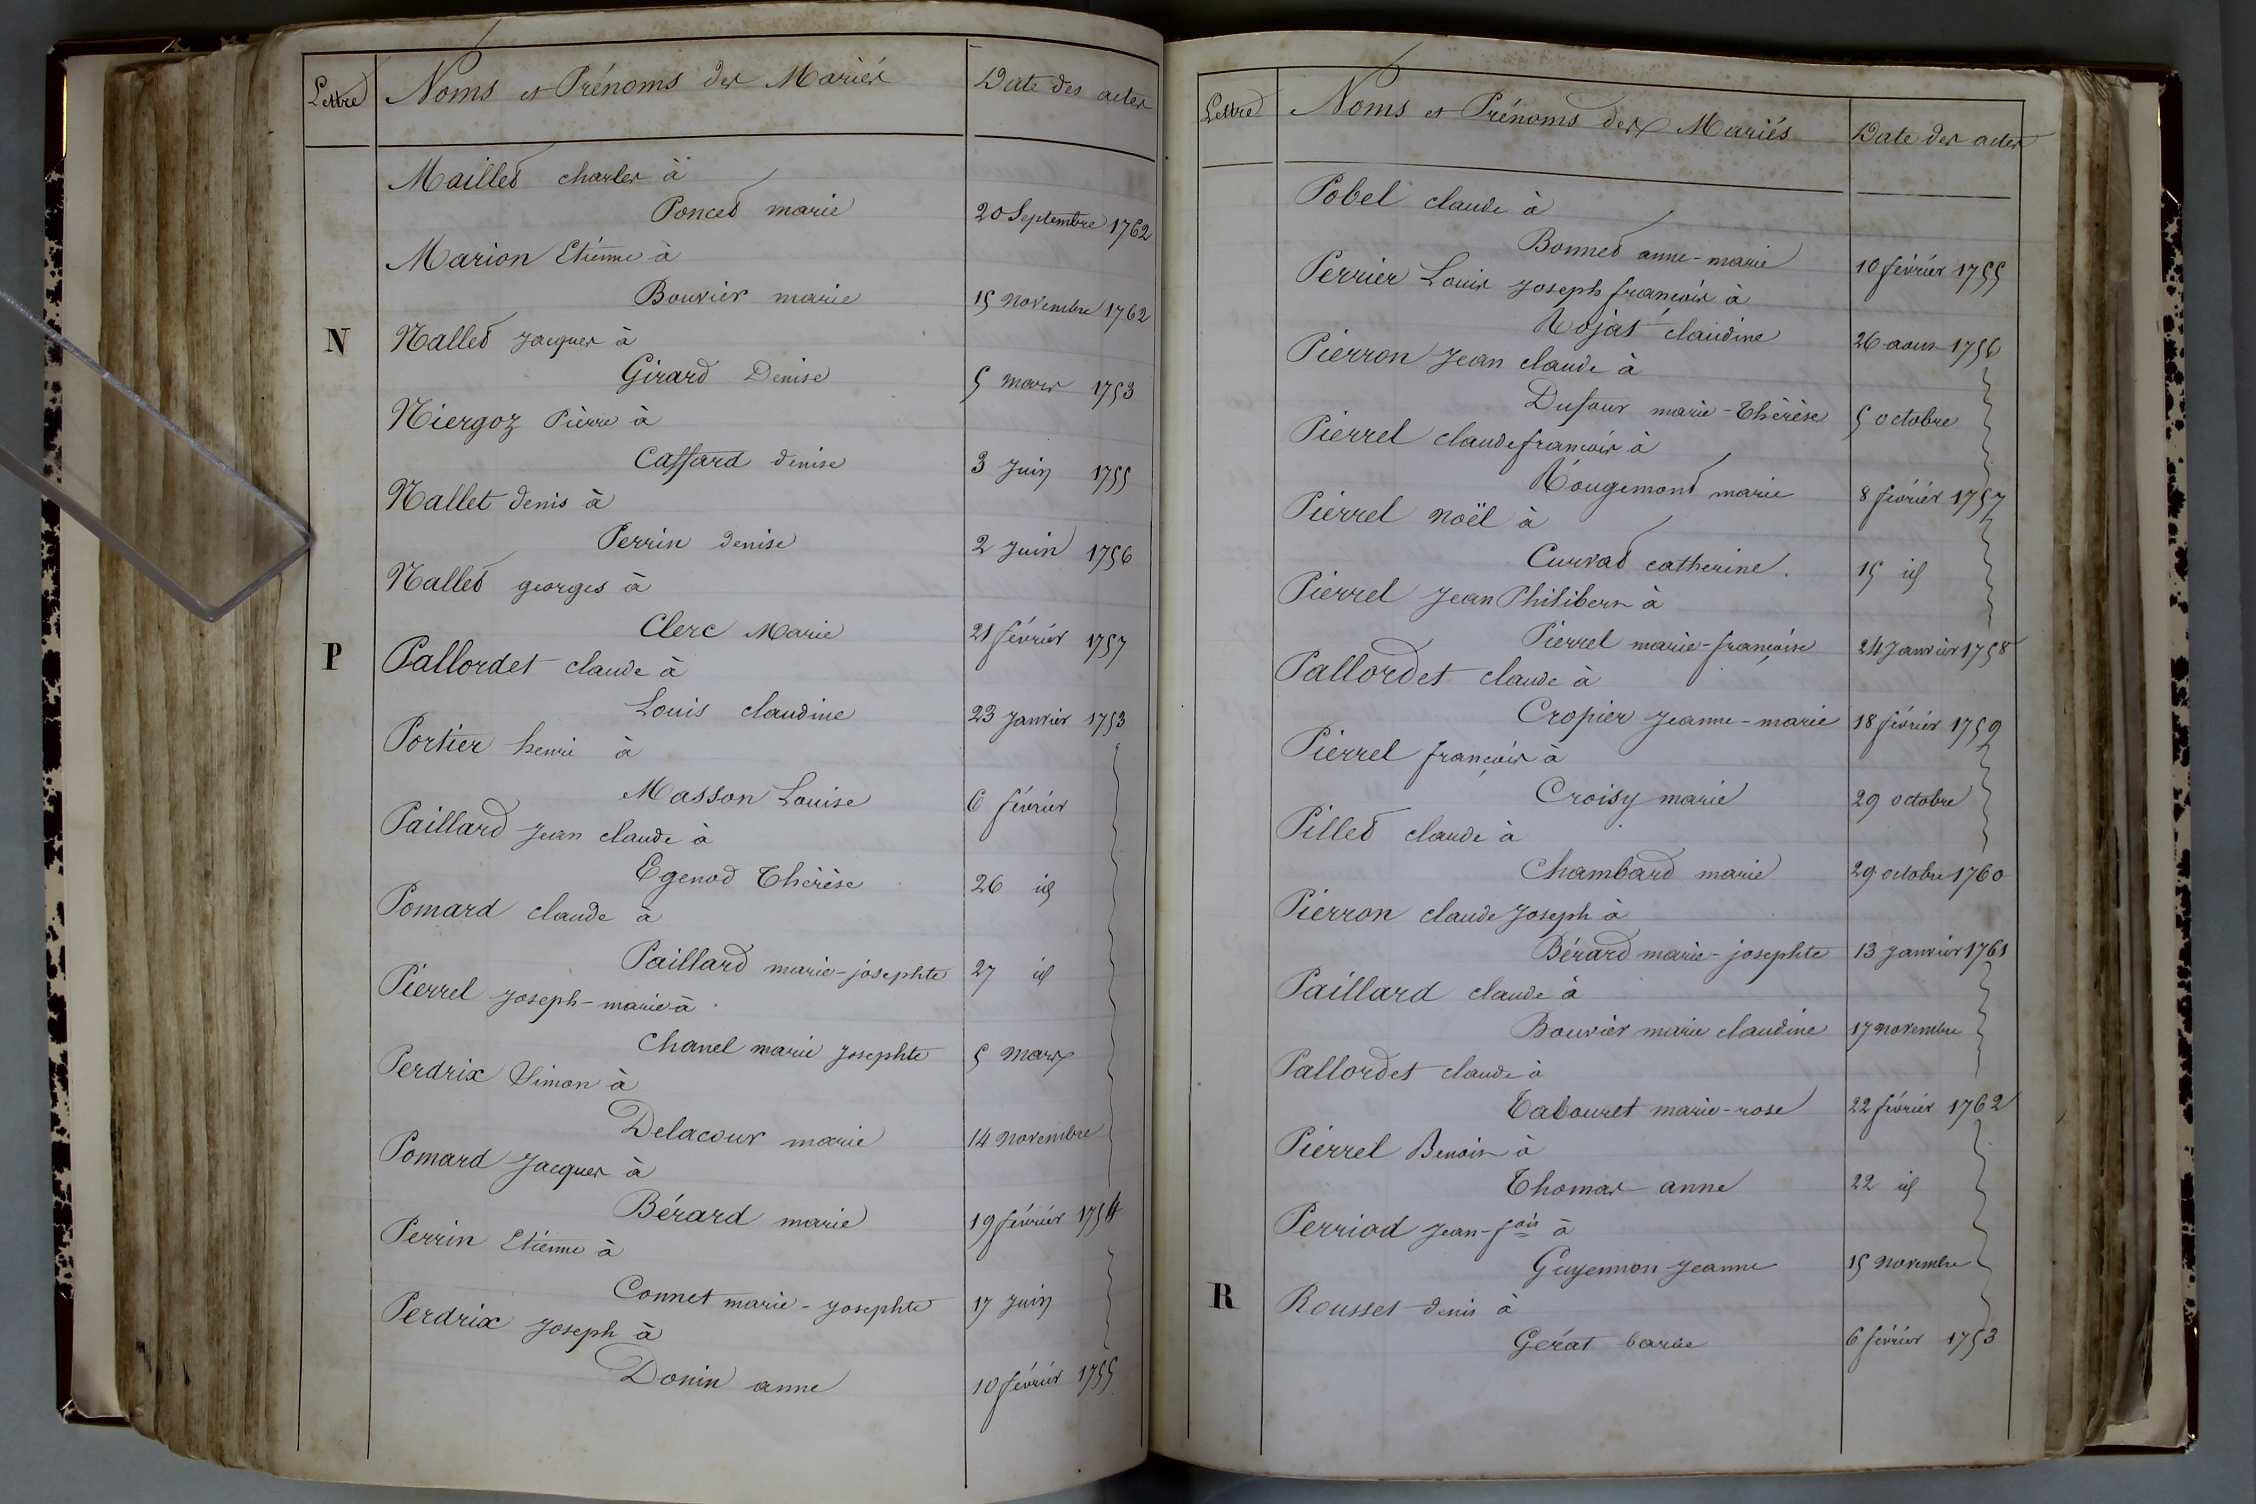 Lettre Noms et Prénoms des Mariés Date des actes
Maillet charles à
Poncet marie 20 Septembre 1762
Marion Etienne à
Bouvier marie 15 novembre 1762
N Nallet Jacques à
Girard Denise 5 mars 1753
Niergoz Pierre à
Cassard denise 3 Juin 1755
Nallet denis à
Perrin denise 2 Juin 1756
Nallet georges à
Clerc Marie 21 février 1757
P Pallordet claude à
Louis claudine 23 Janvier 1753
Portier henri à
Masson Louise 6 février
Paillard Jean claude à
Egenod Thérèse 26 id
Pomard claude à
Paillard marie-josephte 27 id
Pierrel Joseph-marie à
Chanel marie Josephte 5 mars
Perdrix Simon à
Delacour marie 14 novembre
Pomard Jacques à
Bérard marie 19 février 1754
Perrin Etienne à
Connet marie-Josephte 17 Juin
Perdrix Joseph à
Donin anne 10 février 1755
Lettre Noms et Prénoms des Mariés Date des actes
Pobel claude à
Bonnet anne-marie 10 février 1755
Perrier Louis Joseph françois à
Rojat claudine 26 aout 1756
Pierron Jean claude à
Dufour marie-Thérèse 5 octobre
Pierrel claude françois à
Rougemont marie 8 février 1757
Pierrel Noël à
Curvat catherine. 15 id
Pierrel Jean Philibert à
Pierrel marie-françoise 24 Janvier 1758
Pallordet claude à
Cropier Jeanne-marie 18 février 1759
Pierrel françois à
Croisy marie 29 octobre
Pillet claude à
Chambard marie 29 octobre 1760
Pierron claude Joseph à
Bérard marie-josephte 13 Janvier 1761
Paillard claude à
Bouvier marie claudine 17 novembre
Pallordet claude à
Tabouret marie-rose 22 février 1762
Pierrel Benoit à
Thomas anne 22 id
Perriod Jean-fois à
Guyennon Jeanne 15 novembre
R Rousset denis à
Gérat barbe 6 février 1753